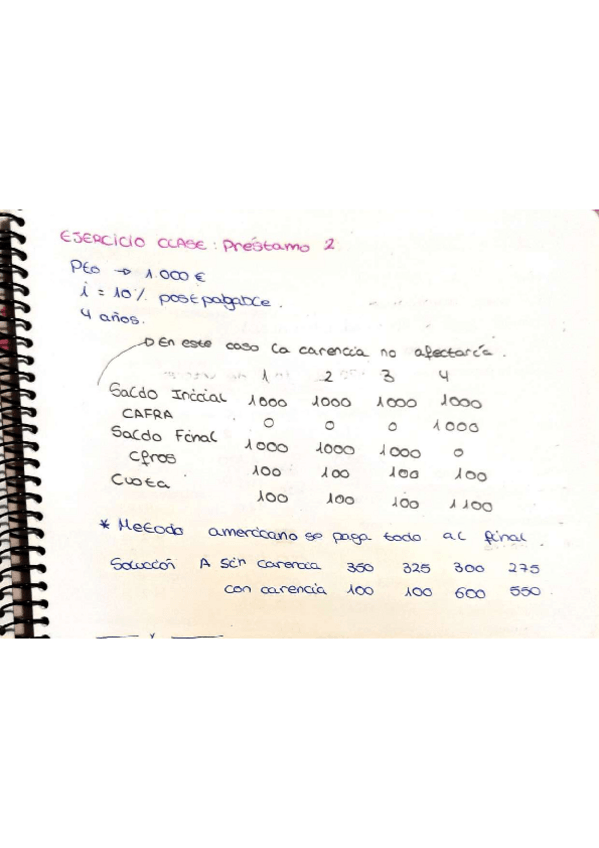 EJERCICIO CLASE: Préstamo 2
Pto → 1.000 €
i = 10% postpagable.
4 años.
→ En este caso la carencia no afectaría.
1 2 3 4
Saldo Inicial 1000 1000 1000 1000
CAFRA 0 0 0 1000
Saldo Final 1000 1000 1000 0
Cfros 100 100 100 100
Cuota 100 100 100 1100
* Metodo americano se paga todo al final.
Solución A Sin carencia 350 325 300 275
con carencia 100 100 600 550